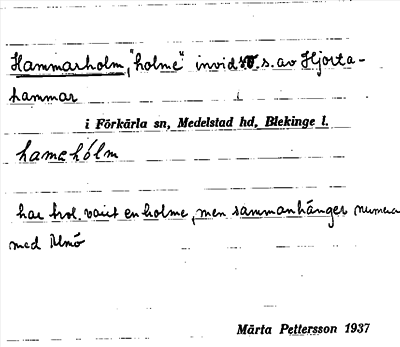 Hammarholm, "holme" invid s. av Hjorta-
hammar
i Förkärla sn, Medelstad hd, Blekinge l.
hamahólm
har trol. varit en holme, men sammanhänger numera
med Almö
Märta Pettersson 1937